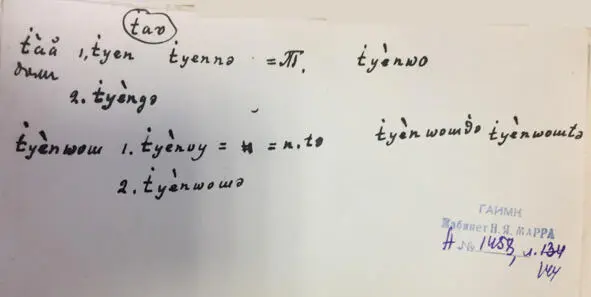 ṫav
ṫàǎ 1, ṫyen ṫyennə = П. ṫyènwo
дом
2. ṫyèngə
ṫyènwom 1. ṫyènvy = н = n.tə ṫyènwomdo ṫyènwomtə
2. ṫyènwomə
ГАИМК
Кабинет Н.Я. МАРРА
А № 1458, л. 134
144